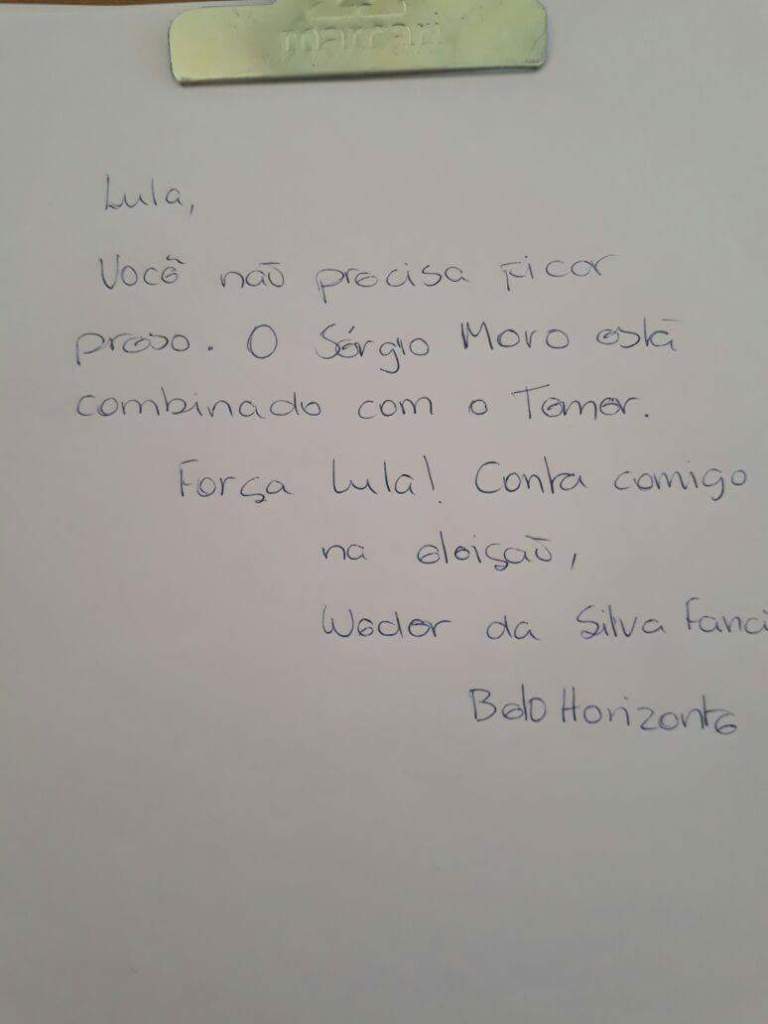 Lula,
Você não precisa ficar
preso. O Sérgio Moro está
combinado com o Temer.
Força Lula! Conta comigo
na eleição,
Weder da Silva
Belo Horizonte